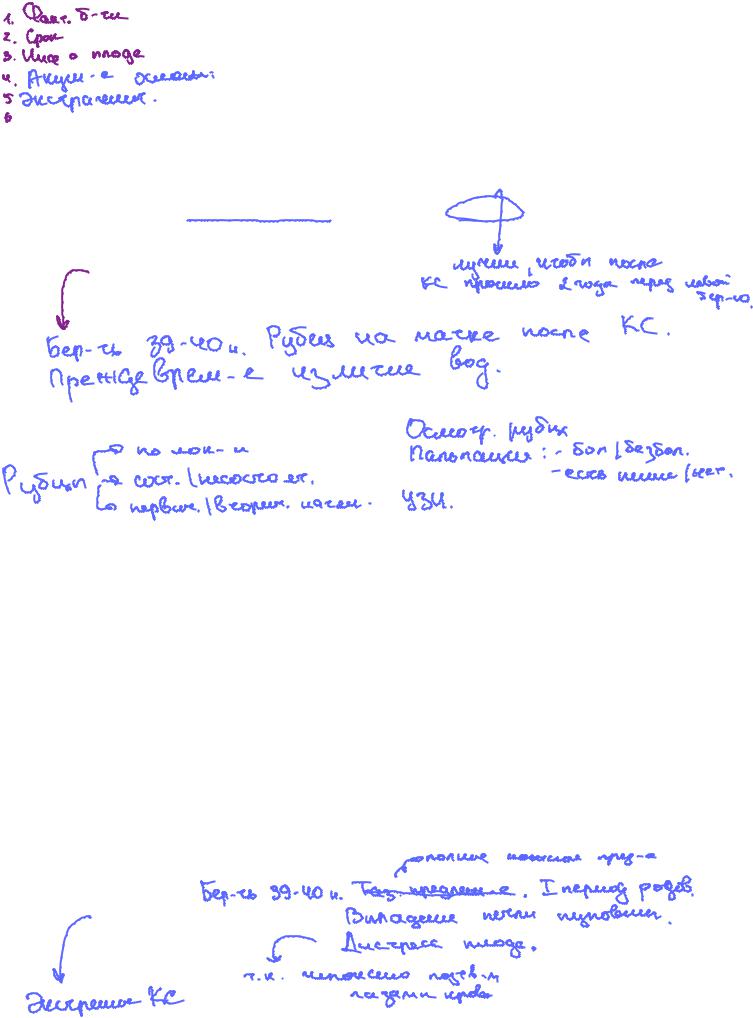 1. Факт. б-ти
2. Срок
3. Инфо о плоде
4. Акуш-е ослож:
5 Экстрагенит.
6
лучше, чтобы после
КС прошло 2 года перед новой
бер-ю.
Бер-ть 39-40 н. Рубец на матке после КС.
Преждеврем-е излитие вод.
Рубцы
по лок-и
сост. / несостоят.
первич. / вторич. натяж.
Осмотр. рубца
Пальпация: - бол / безбол.
- есть ниши / нет.
УЗИ.
полное ножное пред-е
Бер-ть 39-40 н. Таз. предлежание. I период родов.
Выпадение петли пуповины.
Дистресс плода.
т.к.
газами крови
Экстренное КС